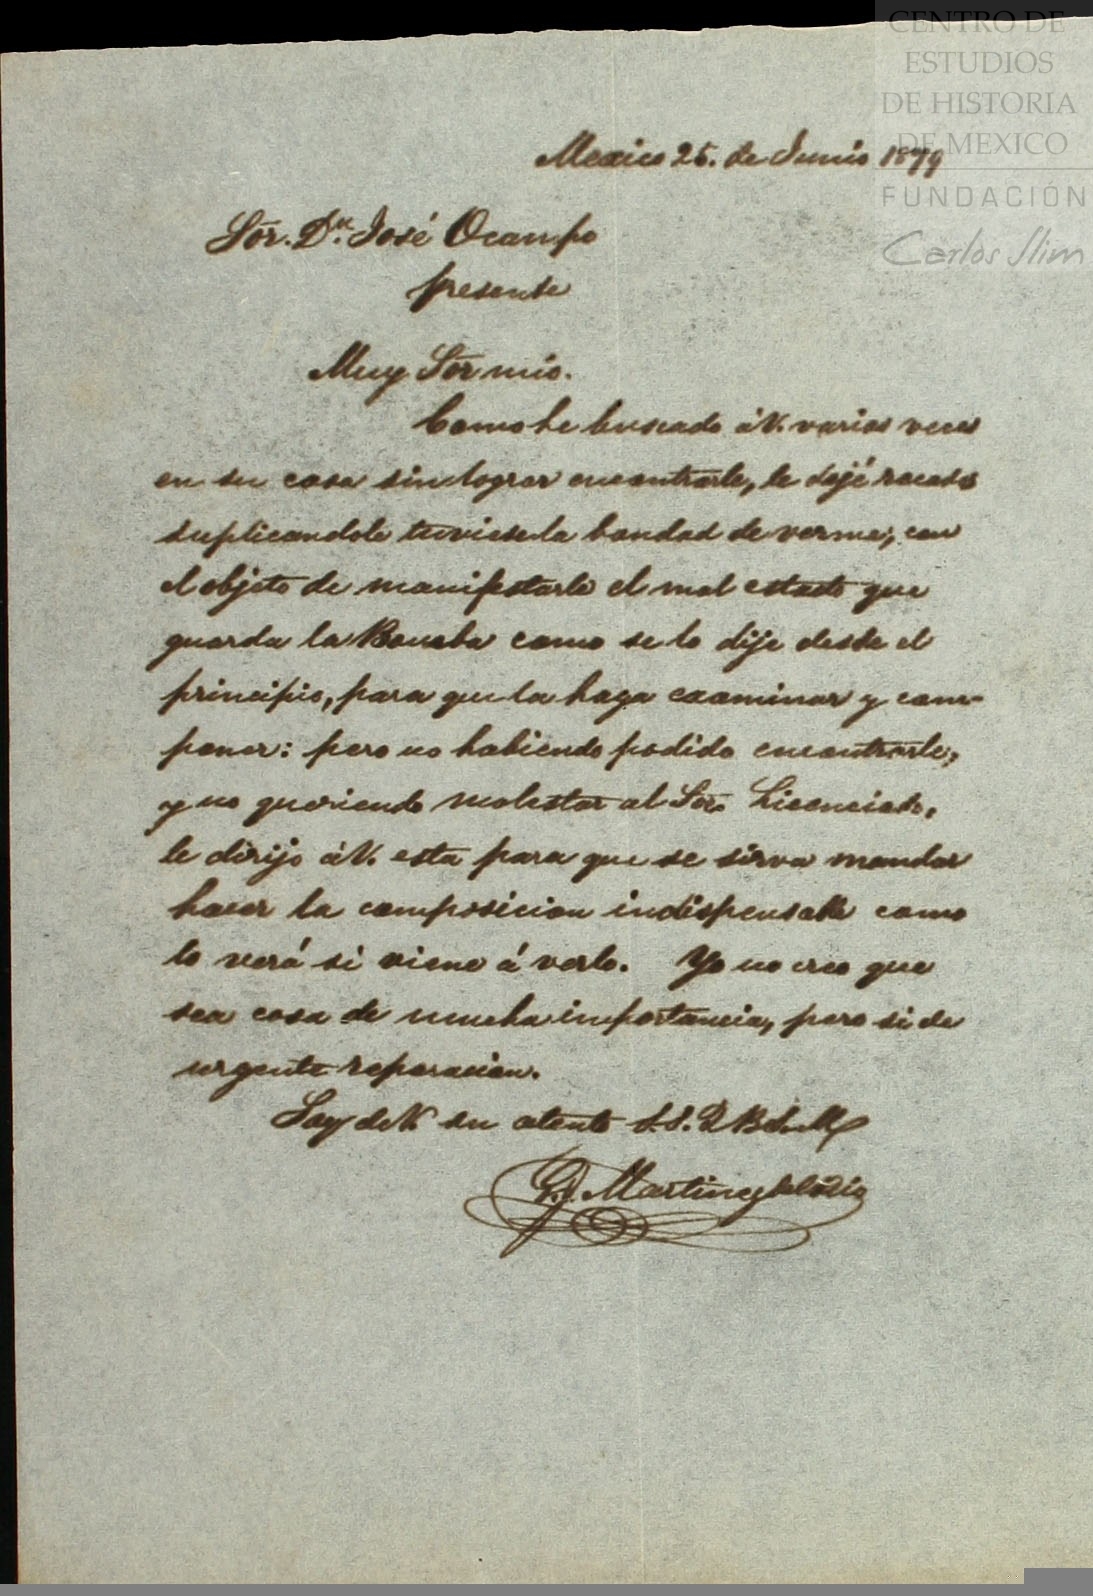 CENTRO DE
ESTUDIOS
DE HISTORIA
DE MEXICO
FUNDACIÓN
Carlos Slim
Mexico 25. de Junio 1879
Sōr. Dn. José Ocampo
presente
Muy Sōr mio.
Como he buscado á V. varias veces
en su casa sin lograr encontrarle, le dejé recado
suplicandole tuviese la bondad de verme, con
el objeto de manifestarle el mal estado que
guarda la Bomba como se lo dije desde el
principio, para que la haga examinar y com-
poner: pero no habiendo podido encontrarle,
y no queriendo molestar al Sōr. Licenciado,
le dirijo á V. esta para que se sirva mandar
hacer la composicion indispensable como
lo verá si viene á verlo. Yo no creo que
sea cosa de mucha importancia, pero si de
urgente reparacion.
Soy de V. su atento S.S. Q B S. M
Martinez del Rio